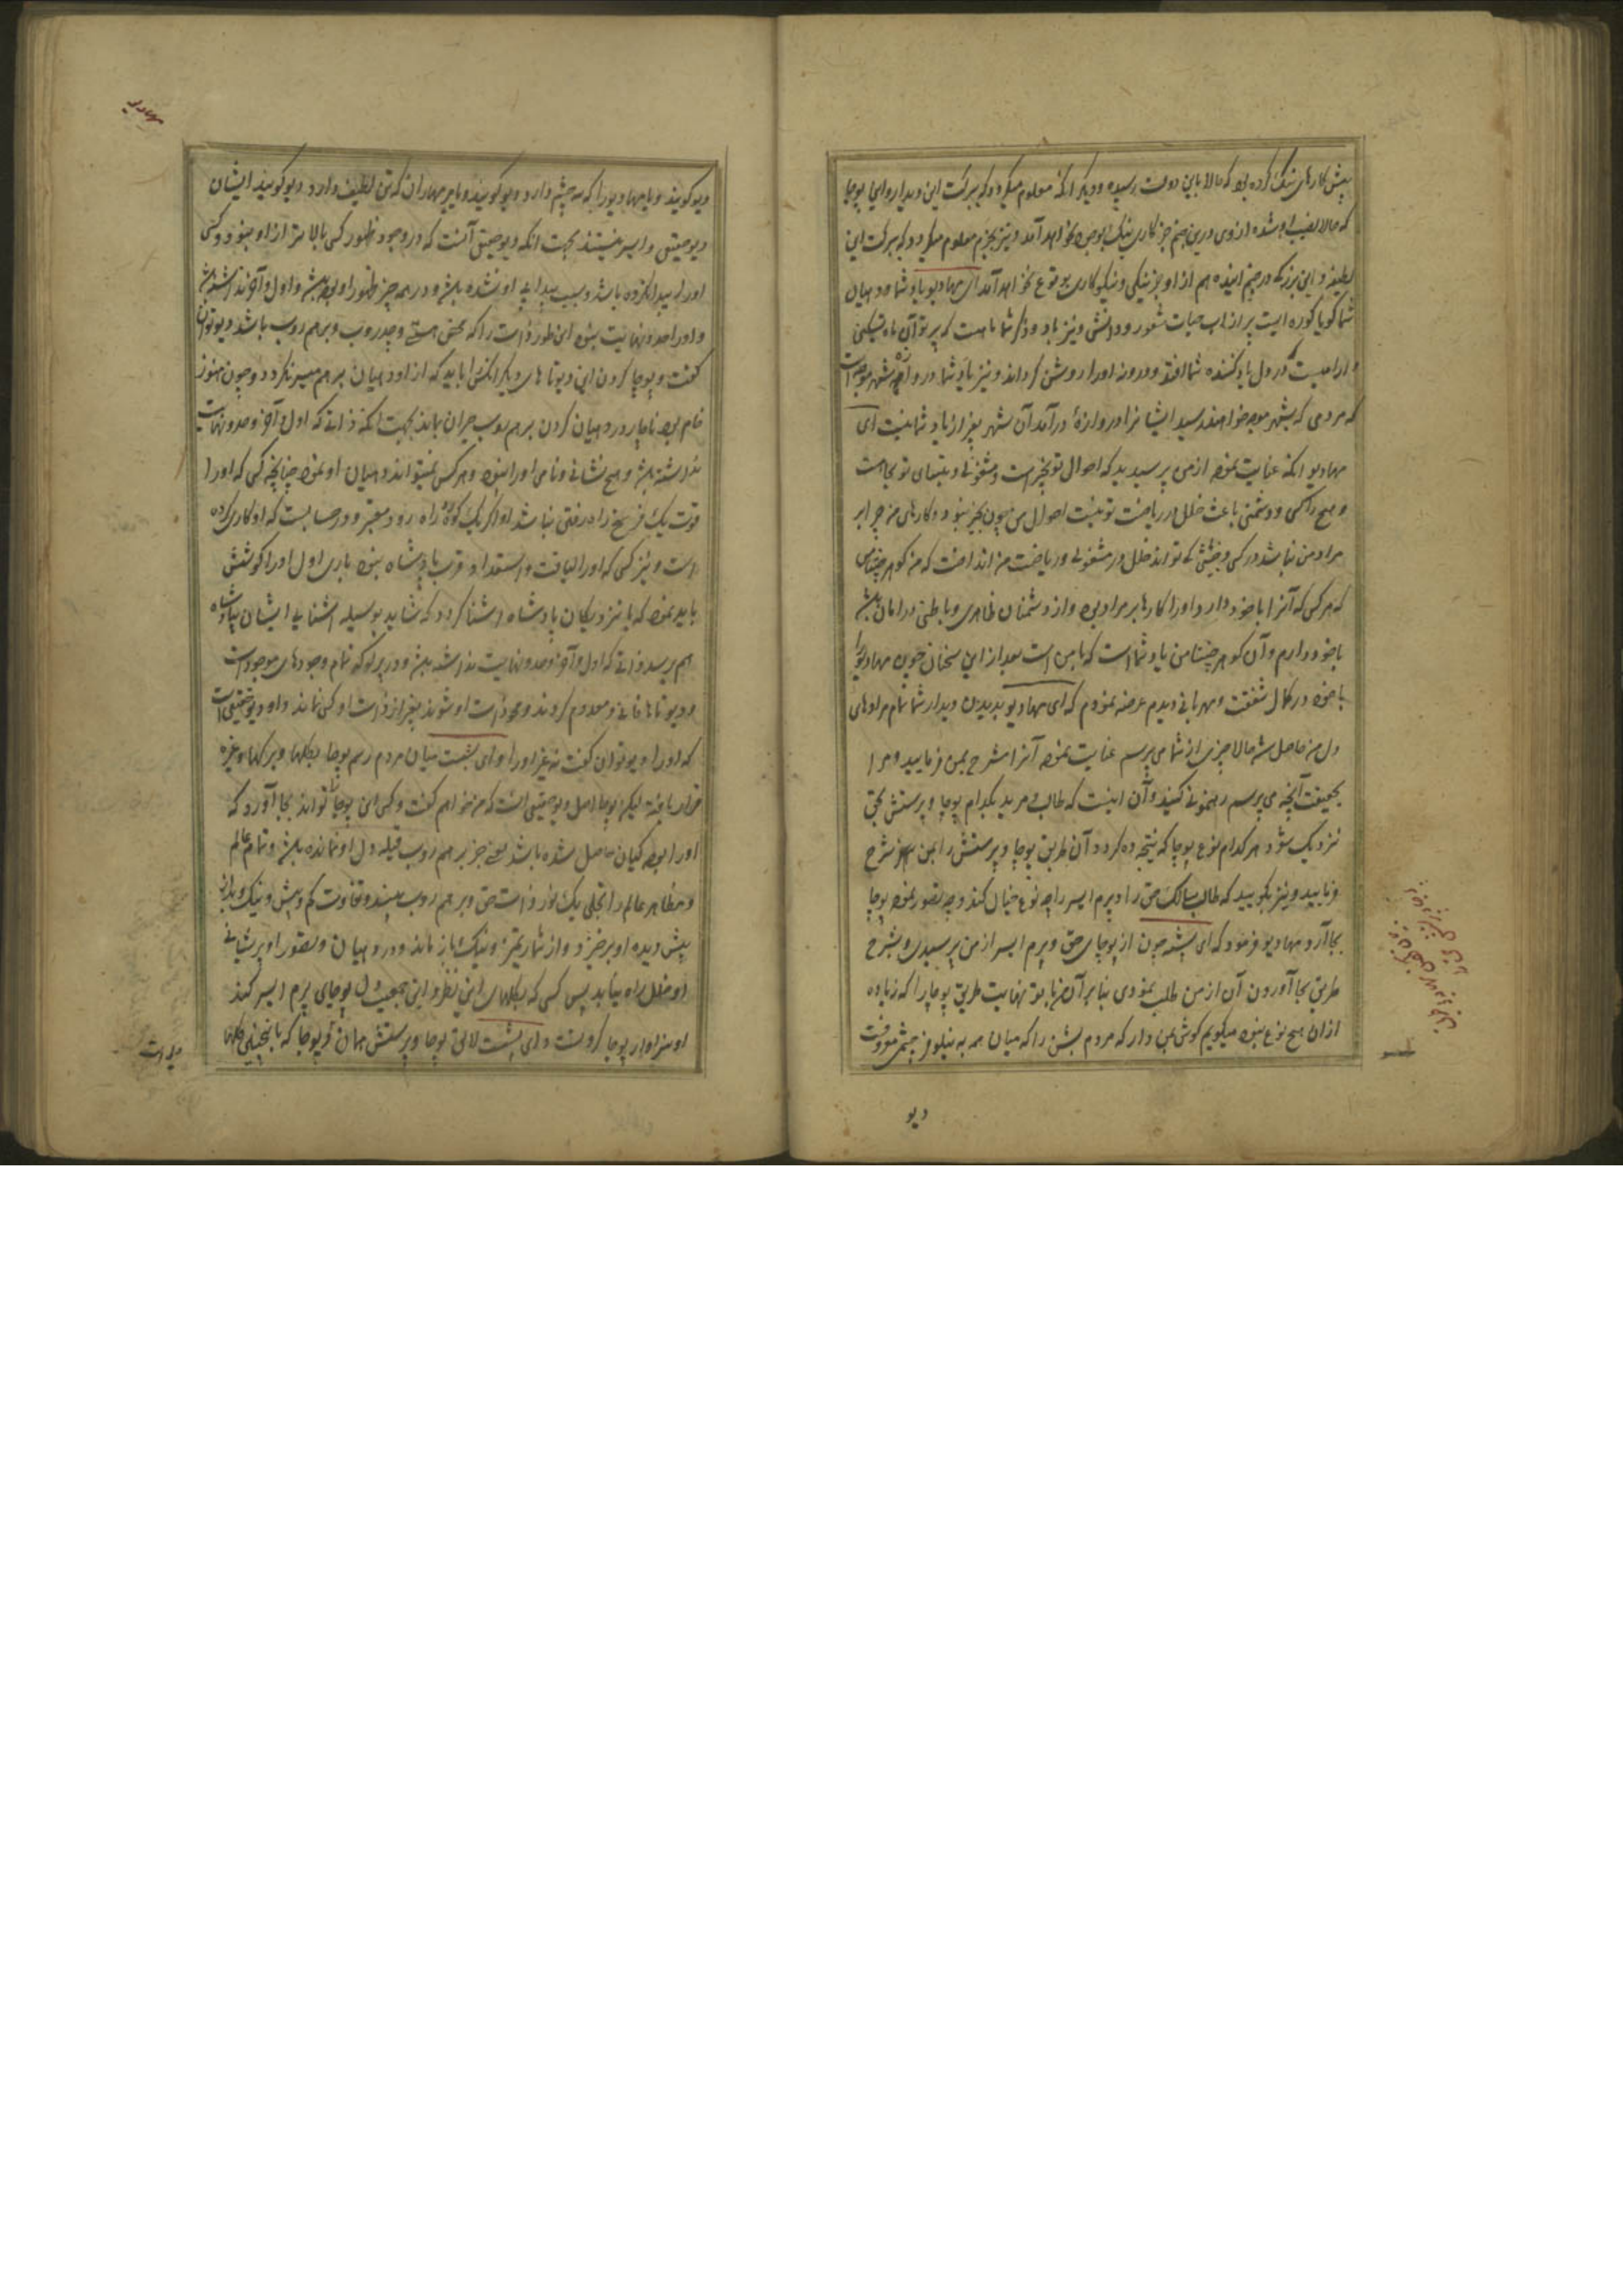 پیش کارهای نیک کرده بود که حالا باین دولت رسیده و دیگر آنکه معلوم میگردد که ببرکت این دیدار و این پوجا
که حالا نصیب او شده از وی درین جنم جز کار نیک بوجود نخواهد آمد و نیز بجزم معلوم میگردد که ببرکت این
در جنم آینده هم از او جز نیکی و نیکوکاری بوقوع نخواهد آمد ای مهادیو یاد شما و دهیان
شما گویا کوزه ایست پر از آب حیات شعور و دانش و نیز یاد و ذکر شما ماهست که پرتو آن ماه تسکین
در دل یاد کننده شما افتد و درونه او را روشن گرداند و نیز یاد شما دروازه شهر موچهه است
که مردمی که بشهر موچهه خواهند رسید ایشانرا دروازهٔ درآمد آن شهر بغیر از یاد شما نیست ای
مهادیو آنکه عنایت نموده از من پرسیدید که احوال تو بخیر است و مشغولی و تپسیای تو بجا است
و هیچ راکسی و دشمنی باعث خلل در ریاضت تو نیست احوال من چون بخیر نبود و کارهای من چرا بر
مراد من نباشد و کسی و جنّی کی تواند خلل در مشغولی و ریاضت من انداخت که من گوهر چنتامن
که هر کس که آنرا با خود دارد او را کارها بر مراد بود و از دشمنان ظاهری و باطنی در امان باشد
با خود دارم و آن گوهر چنتامن یاد شما است که با من است بعد از این سخنان چون مهادیو را
با خود در کمال شفقت و مهربانی دیدم عرضه نمودم که ای مهادیو بدیدن دیدار شما تمام مرادهای
دل من حاصل شد حالا چیزی از شما می پرسم عنایت نموده آنرا مشرح بمن فرمایید و مرا
بحقیقت آنچه می پرسم رهنمونی کنید و آن اینست که طالب و مرید بکدام پوجا و پرستش بحق
نزدیک شود هر کدام نوع پوجا که نتیجه ده گردد آن طریق پوجا و پرستش را بمن شرح
فرمایید و نیز بگویید که طالب سالک حق را و پرم ایسر را چه نوع خیال کند و چه تصور نموده پوجا
بجا آرد مهادیو فرمود که ای بشست چون از پوجای حق و پرم ایسر از من پرسیدی و شرح
طریق بجا آوردن آن از من طلب نمودی بنابر آن من با تو نهایت طریق پوجا را که زیاده
ازان هیچ نوع نبود میگویم گوش بمن دار که مردم بشن را که میان همه به نیلوفر چشم معروفست
دیو
دیو گویند و یا مهادیو را که سه چشم دارد دیو گویند و یا برمها را که تن لطیف دارد دیو گویند ایشان
دیو حقیقی و ایسر نیستند بجهت آنکه دیو حقیقی آنست که در وجود و ظهور کسی بالاتر از او نبود و کسی
او را پیدا نکرده باشد و سبب پیدایی او نشده باشد و در همه چیز ظهور او بوده باشد و اول و آخر نداشته باشد
و او را حد و نهایت نبود این طور ذات را که محض هستی و چدروپ و برهم روپ باشد دیو توان
گفت و پوجا کردن این دیوتاهای دیگر آنکس را باید که از او دهیان برهم میسر نگردد و چون هنوز
خام بود ناچار در دهیان کردن برهم روپ حیران بماند بجهت آنکه ذاتی که اول و آخر و حد و نهایت
نداشته باشد و هیچ نشانی و نامی او را نبود و هر کس نمیتواند دهیان او نمود چنانچه کسی که او را
قوت یک فرسخ راه رفتن نباشد او اگر یک کروه راه رود معتبر و در حسابست که او کاری کرده
است و نیز کسی که او را لیاقت و استعداد قرب پادشاه نبود باری اول او را کوشش
باید نمود که با نزدیکان پادشاه آشنا گردد که شاید بوسیله آشنایی ایشان بپادشاه
هم برسد ذاتی که اول و آخر و حد و نهایت نداشته باشد و در پرلو که تمام وجودهای موجودات
و دیوتاها فانی و معدوم گردند و محو ذات او شوند بغیر از ذات او کسی نماند و او دیو حقیقی است
که او را دیو توان گفت نه غیر او را و ای بشست میان مردم رسم پوجا بگلها و برگها و غیره
قرار یافته لیکن پوجا اصل دیو حقیقی آنست که من خواهم گفت و کسی این پوجا را تواند بجا آورد که
او را بوده گیان حاصل شده باشد یعنی جز برهم روپ قبله دل او نمانده باشد و تمام عالم
و مظاهر عالم را تجلی یک نور ذات حق و برهم روپ بیند و تفاوت کم و بیش و نیک و بد از
پیش دیده او برخیزد و از شمار یک و دو باز ماند و در دهیان و تصور او پریشانی
و خلل راه نیابد پس کسی که بگلهای این نظر و این جمعیت دل پوجای پرم ایسر کند
او سزاوار پوجا کردنست و ای بشست لائق پوجا و پرستش همان دیو پوجا که باینچنین گلها
مهادیو